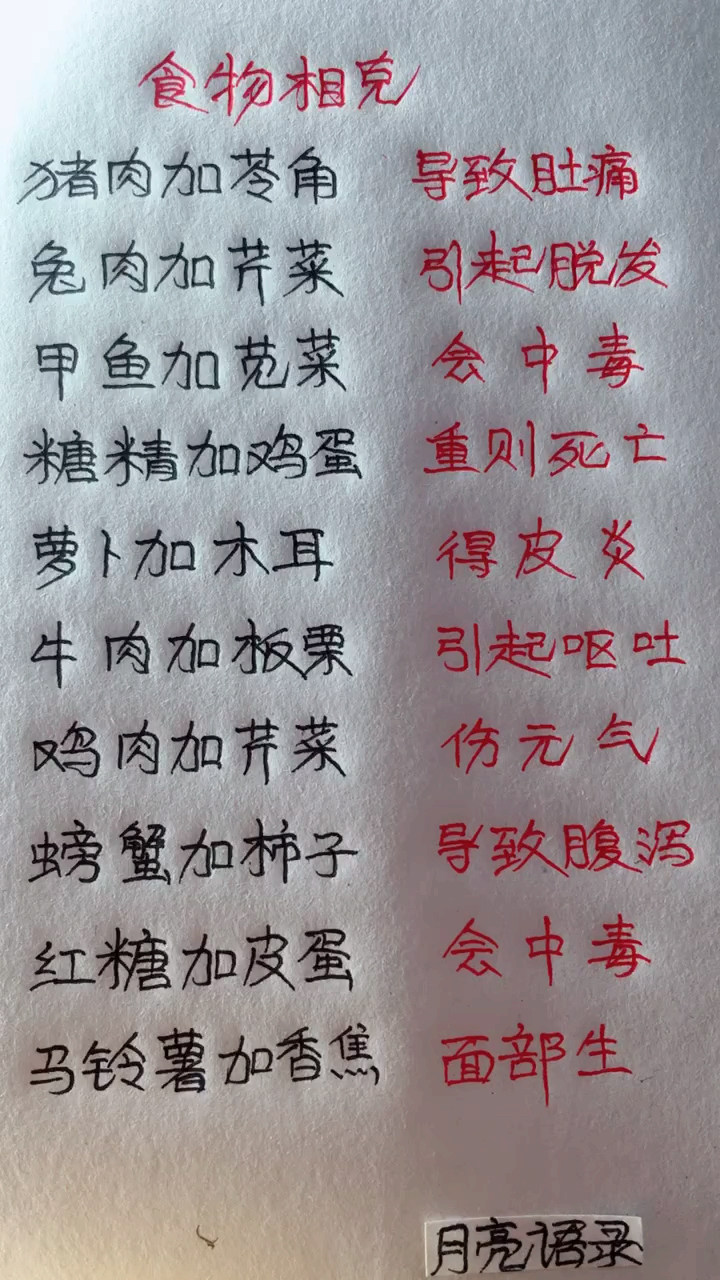 食物相克
猪肉加苓角 导致肚痛
兔肉加芹菜 引起脱发
甲鱼加苋菜 会中毒
糖精加鸡蛋 重则死亡
萝卜加木耳 得皮炎
牛肉加板栗 引起呕吐
鸡肉加芹菜 伤元气
螃蟹加柿子 导致腹泻
红糖加皮蛋 会中毒
马铃薯加香焦 面部生
月亮语录